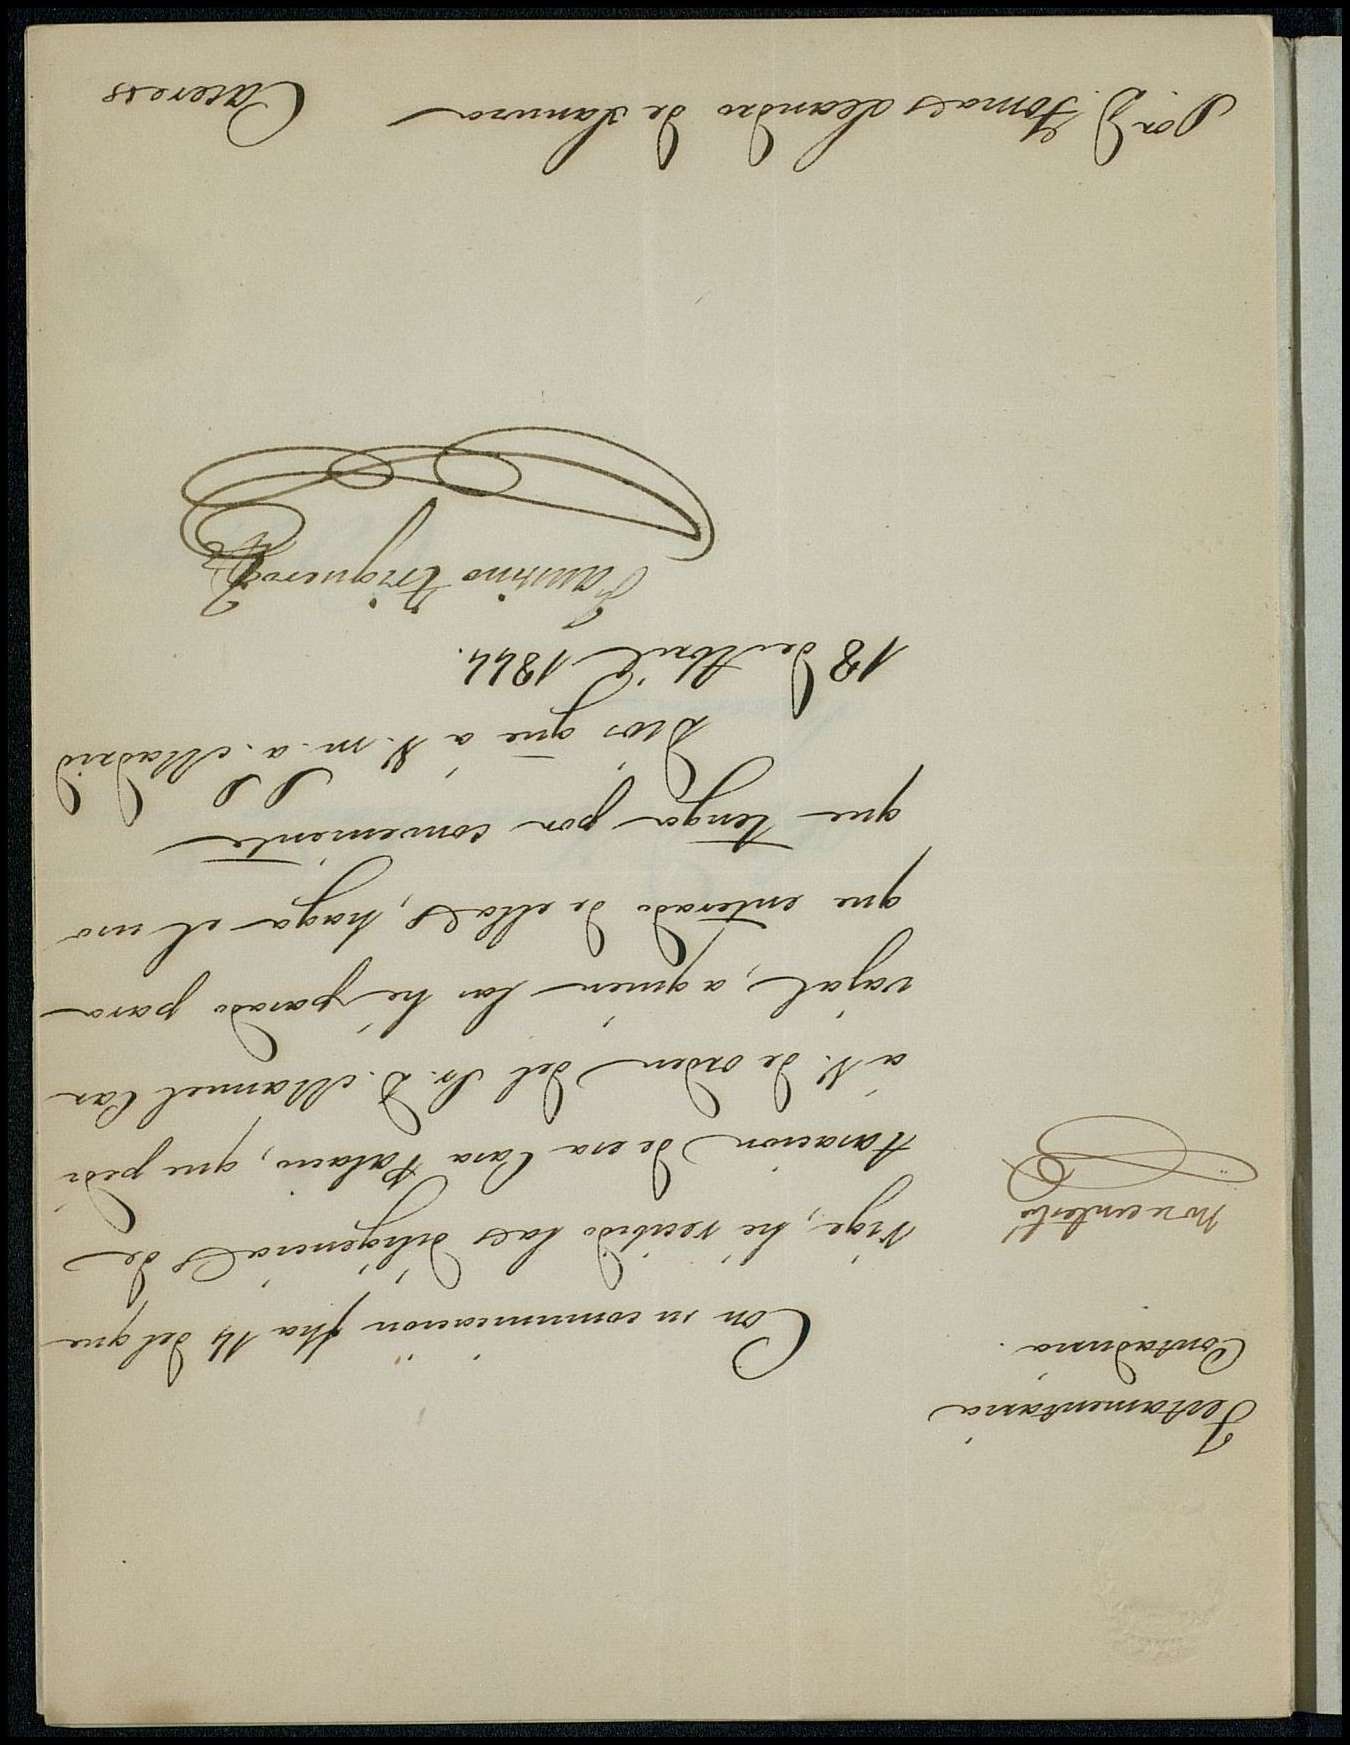 Testamentaria
Contaduria.
no u contestó
Con su comunicacion fha 14 del que
rige, hé recibido las diligencias de
tasacion de esa Casa Palacio, que pedí
á V. de orden del Sr. D. Manuel Car
vajal, a quien las hé pasado para
que enterado de ellas, haga el uso
que tenga por conveniente
Dios gue á V. m. a. Madrid
18 de Abril 1844.
Faustino Trigueros
Sor. D. Tomas Leandro de
Caceres